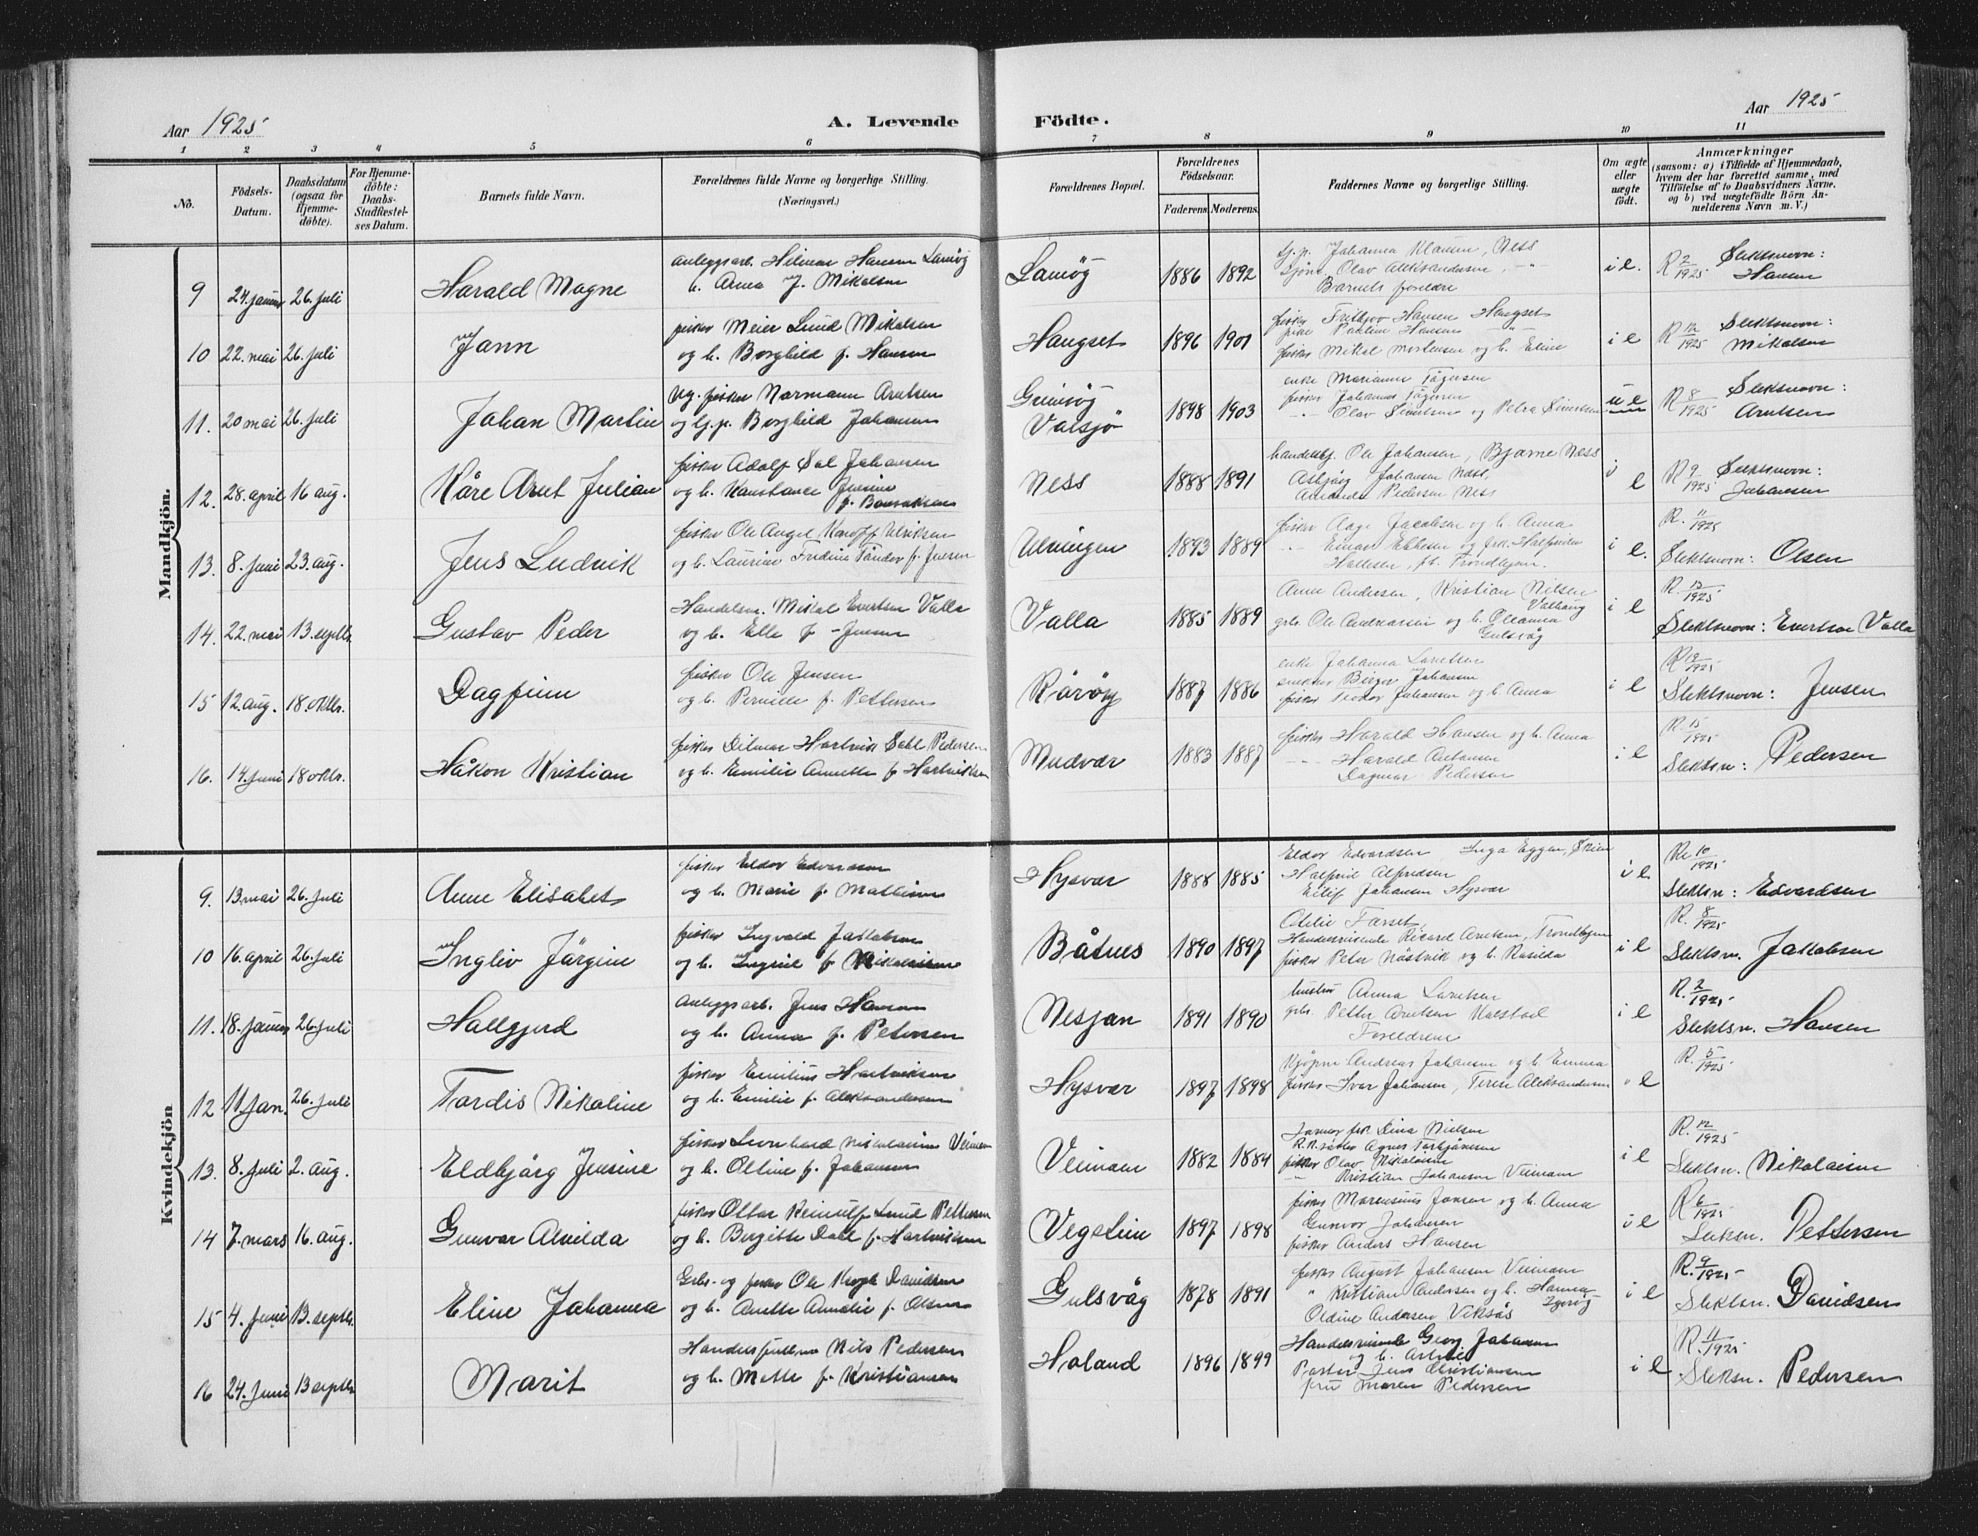 Aar 1925
A. Levende Födte.
Aar 1925
1 2 3 4 5 6 7 8 9 10 11
No.
Födsels-Datum.
Daabsdatum (ogsaa for Hjemme-döbte).
For Hjemme-döbte: Daabs-Stadfæstel-ses Datum.
Barnets fulde Navn.
Forældrenes fulde Navne og borgerlige Stilling.
(Næringsvei.)
Forældrenes Bopæl.
Forældrenes Födselsaar.
Faderens. Moderens.
Faddernes Navne og borgerlige Stilling.
Om ægte eller uægte födt.
Anmærkninger
(saasom: a) i Tilfælde af Hjemmedaab, hvem der har forrettet samme, med Tilföielse af to Daabsvidners Navne, og b) ved uægtefödte Börn An-melderens Navn m. V.)
Mandkjön.
9 24. januar 26. juli Harald Magne
anleggsarb. Hilmar Hansen Lamøy
h. Anna J. Mikalsen
Lamøy 1886 1892
Gj.p. Johanna Klausen, Ness
Olav Aleksandersen, -"-
Barnets foreldre
i e. R 2/1925 Slektsnavn: Hansen
10 22. mai 26. juli Jann
fisker Meier Lund Mikalsen
og h. Borghild f. Hansen
Haugset 1896 1901
fisker Fritjov Hansen Haugset
pike Pauline Hansen -"-
fisker Mikal Mortensen og h. Eline
i e R 12/1925 Slektsnavn: Mikalsen
11. 20 mai 26. juli Johan Martin
Ug. fisker Normann Arntsen
og Gj.p. Borghild Johansen
Grimsøy
Valsjø 1898 1903
enke Marianne
fisker Johannes
-"- Olav Simonsen og Petra Simonsen
u e R 8/1925 Slektsnavn: Arntsen
12. 28. april 16 aug. Kåre Arnt Julian
fisker Adolf Johansen
og h. Konstance Jensine
Ness 1888 1891
handelsbj. Ole Johansen, Bjarne Ness
Asbjørg Johansen Ness,
Amanda Pedersen Ness
i e R 9/1925 Slektsnavn: Johansen
13. 8. juni 23. aug. Jens Ludvik
fisker Ole Angel Ulriksen
og h. Fredrik f. Jensen
Ulvingen 1893 1889
fisker Aage Jacobsen og h. Anna
-"- Einar Ebbesen og frk. Halfrida
Trondhjem.
i e. R. 11/1925
Slektsnavn: Olsen
14. 22. mai 13. septbr. Gustav Peder
Handelsm. Mikal Evertsen Valla
og h. Elle f. Jensen
Valla 1885 1889
Anne Andersen, Kristian Nilsen
grb. Ole Andreassen og h. Oleanna
Gulsvåg
i e R. 12/1925
Slektsnavn: Evertsen Valla
15 12. aug. 18. oktbr. Dagfinn
fisker Ole Jensen
og h. Pernille f. Pettersen
Rårøy 1887 1886
enke Johanna Lorntsen
snekker Birger Johansen
fisker Teodor Johansen og h. Anna
i e R 12/1925
Slektsnavn: Jensen
16. 14. juni 18 oktbr. Håkon Kristian
fisker Hartvik Pedersen
og h. Emilie Annette f. Hartviksen
Mudvær 1883 1887
fisker Harald Hansen og h. Anna
-"- Harald
Dagmar Pedersen
i e R 15/1925
Slektsn: Pedersen
Kvindekjön
9. 13 mai 26. juli Anne Elisabet
fisker Eldor Edvardsen
og h. Marie f. Mathisen
Hysvær 1888 1885
Eldor Edvardsen Inga Eggen, Skien
Halfrid Alfredsen
Eilif Johansen Hysvær
i e R. 10/1925
Slektsn: Edvardsen
10 16. april 26. juli Ingliv Jörgine
fisker Ingvald Jakobsen
og h. Ingrid f. Nikolaisen
Båtnes 1890 1897
Otelie Forset
Handelsreisende Rikard Arntsen, Trondhjem
fisker Peter Nöstvik og h. Rasilda
i e R. 8/1925
Slektsn. Jakobsen
11. 18. januar 26 juli Hallgjerd
Anleggsarb. Jens Hansen
og h. Anna f. Petersen
Nesjan 1891 1890
hustru Anna Lorntsen
grb. Petter Arntsen
Foreldrene
i e R. 2/1925
Slektsn. Hansen
12 11 jan. 26. juli Tordis Nikoline
fisker Emilius Hartviksen
og h. Emilie f. Aleksandersen
Hysvær 1897 1898
Kjøpm Andreas Johansen og h. Emma
fisker Ivar Johansen, Terese Aleksandersen
i e R. 5/1925
13. 8. juli 2. aug. Eldbjørg Jensine
fisker Leonhard Nikolaisen
og h. Oline f. Johansen
Veimoen 1882 1884
frk. Dina Nielsen
Agnes Torbjörnsen
fisker Olav Nikolaisen
-"- Kristian Johansen
i e R. 12/1925
Slektsn. Nikolaisen
14 7. mars 16. aug. Gunvor Alvilda
fisker Ottar Reinulf Emil Pettersen
og h. Bergitte f. Hartviksen
Vegstein 1897 1898
fisker Marensius Jonsen og h. Anna
Gunvor Johansen
fisker Anders Hansen
i e R 6/1925
Slektsn. Pettersen
15 4. juni 13. septbr. Eline Johanna
Grbr. og fisker Ole Krogh Davidsen
og h. Anette Amalie f. Olsen
Gulsvåg 1878 1891
fisker August Johansen
" Kristian Andersen og h. Hanna
Oldine Andersen Viksås
i e R. 9/1925
Slektsn. Davidsen
16 24. juni 13 septbr Marit
Handelsfullm Nils Pedersen
og h. Mette f. Kristiansen
Holand 1896 1899
Handelsreisende Georg Johansen
og h.
Pastor Jens Christiansen
fru Maren Pedersen
i e R. 11/1925
Slektsn. Pedersen